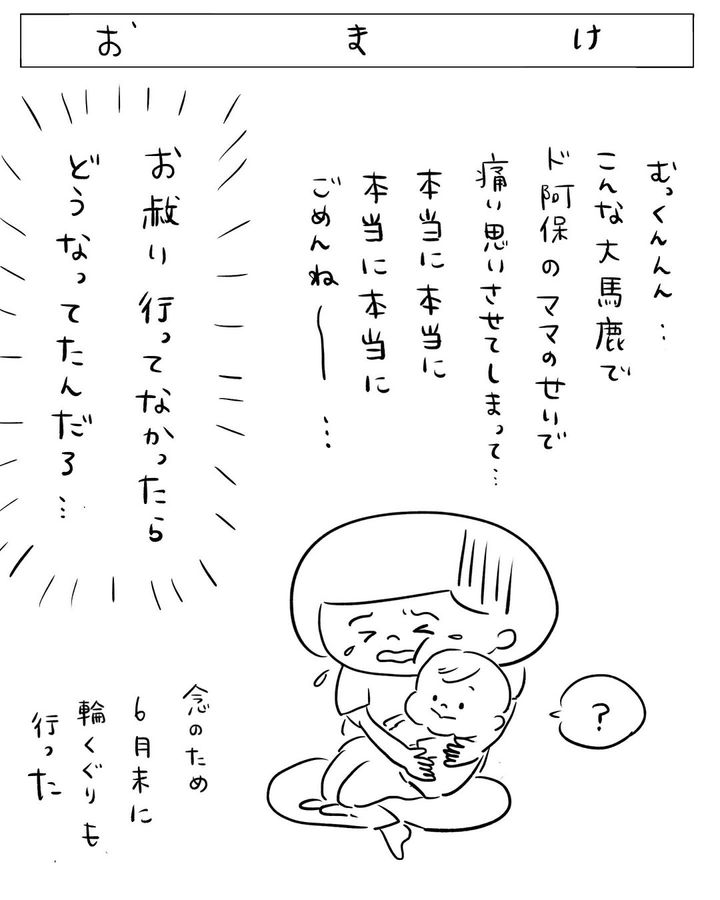 おまけ
むっくんんん…
こんな大馬鹿で
ド阿保のママのせいで
痛い思いさせてしまって…
本当に本当に
本当に本当に
ごめんねー…
お赦い行ってなかったら
どうなってたんだろ…
?
念のため
6月末に
輪くぐりも
行った